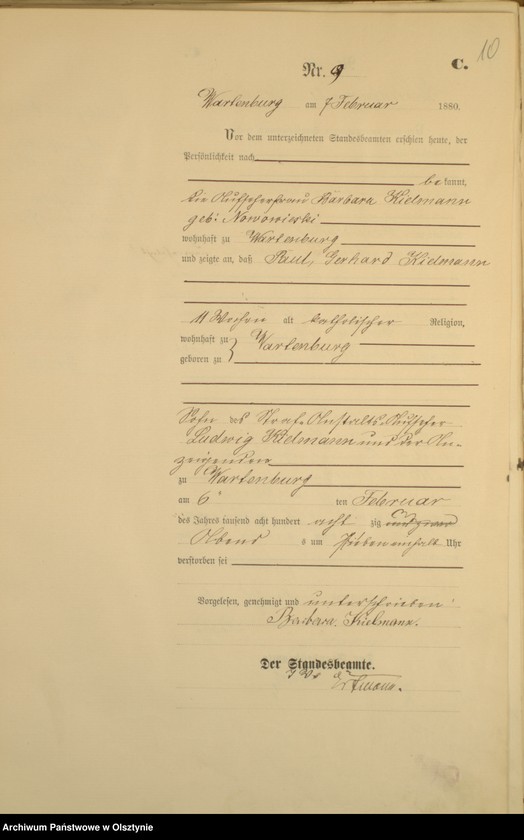 10
C.
Nr. 9
Wartenburg am 7 Februar 1880.
Vor dem unterzeichneten Standesbeamten erschien heute, der
Persönlichkeit nach
bekannt,
die Aufseherfrau Barbara Kielmann
geb: Nowowieski
wohnhaft zu Wartenburg
und zeigte an, daß Paul, Gerhard Kielmann
11 Wochen alt katholischer Religion,
wohnhaft zu
Wartenburg
geboren zu
Sohn des Straf-Anstalts-Aufseher
Ludwig Kielmann und der An-
zeigenden
zu Wartenburg
am 6 ten Februar
des Jahres tausend acht hundert acht zig und zwar
Abend s um sieben einhalb Uhr
verstorben sei
Vorgelesen, genehmigt und unterschrieben
Barbara Kielmann.
Der Standesbeamte.
Archiwum Państwowe w Olsztynie